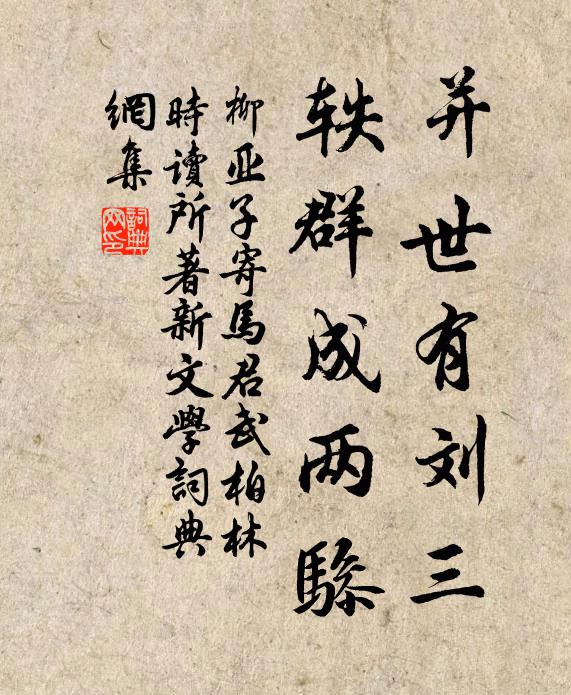 并世有刘三
轶群成两骖
柳亚子寄马君武柏林
時讀所著新文學詞典
網集
詞典网印